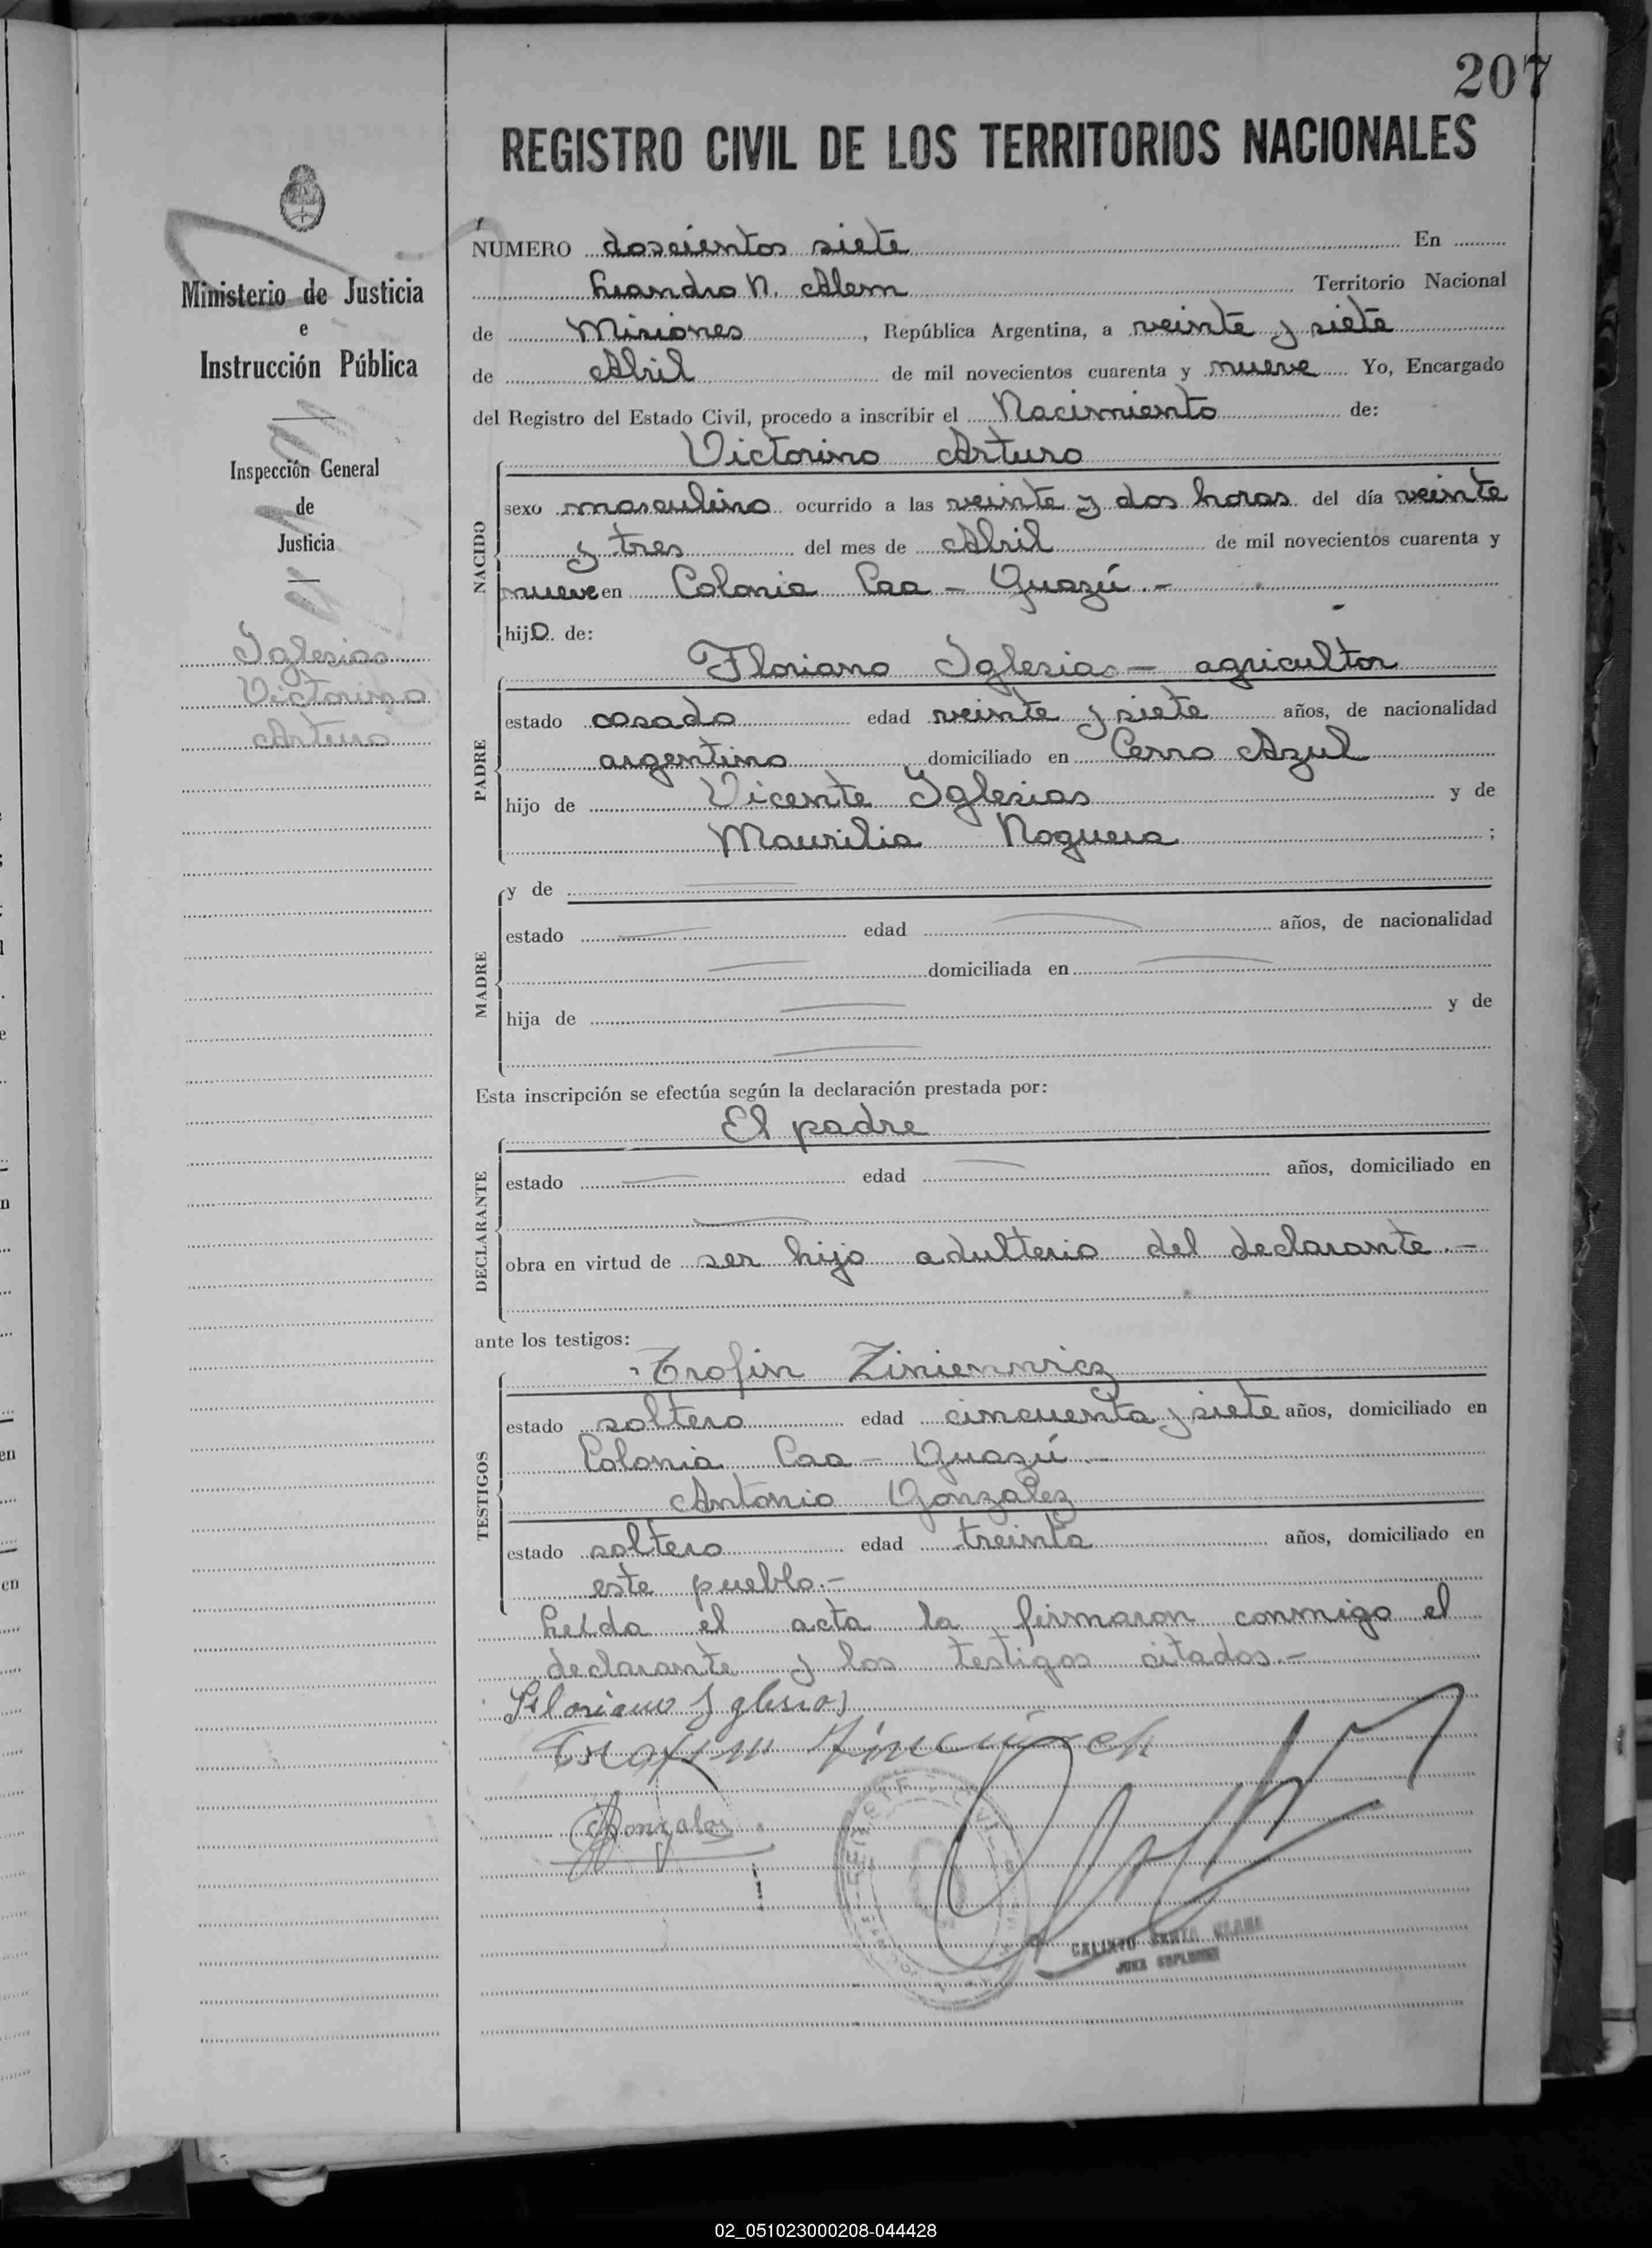 207
REGISTRO CIVIL DE LOS TERRITORIOS NACIONALES
Ministerio de Justicia
e
Instrucción Pública
Inspección General
de
Justicia
Iglesias
Victorino
Arturo
NÚMERO doscientos siete En
Leandro N. Alem Territorio Nacional
de Misiones, República Argentina, a veinte y siete
de Abril de mil novecientos cuarenta y nueve Yo, Encargado
del Registro del Estado Civil, procedo a inscribir el Nacimiento de:
Victorino Arturo
NACIDO
sexo masculino ocurrido a las veinte y dos horas del día veinte
y tres del mes de Abril de mil novecientos cuarenta y
nueve en Colonia Caa - Guazú.-
hijo de:
Floriano Iglesias - agricultor
PADRE
estado casado edad veinte y siete años, de nacionalidad
argentino domiciliado en Cerro Azul
hijo de Vicente Iglesias y de
Maurilia Noguera ;
MADRE
y de
estado edad años, de nacionalidad
domiciliada en
hija de y de
Esta inscripción se efectúa según la declaración prestada por:
El padre
DECLARANTE
estado edad años, domiciliado en
obra en virtud de ser hijo adulterio del declarante.-
ante los testigos:
Trofin Ziniennricz
TESTIGOS
estado soltero edad cincuenta y siete años, domiciliado en
Colonia Caa - Guazú.-
Antonio Gonzalez
estado soltero edad treinta años, domiciliado en
este pueblo.-
Leída el acta la firmaron conmigo el
declarante y los testigos citados.-
Floriano Iglesias
Trofim
AGonzalez
CALIXTO
JUEZ SUPLENTE
02_051023000208-044428